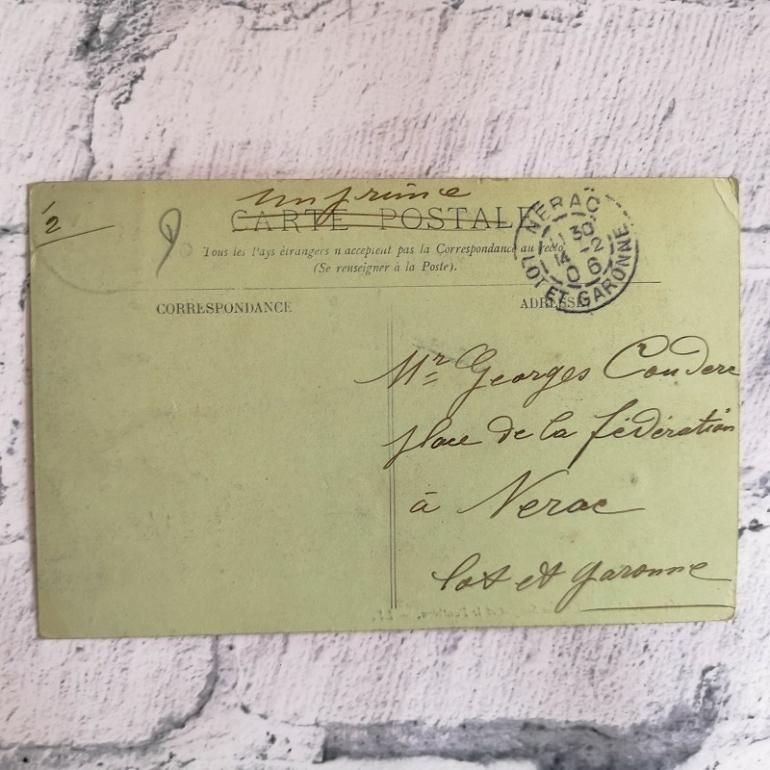 imprimé
2
CARTE POSTALE
Tous les Pays étrangers n'acceptent pas la Correspondance au recto
(Se renseigner à la Poste).
NERAC
1 30
14 -2
06
LOT ET GARONNE
CORRESPONDANCE
ADRESSE
Mr Georges Couderc
place de la fédération
à Nerac
lot et garonne